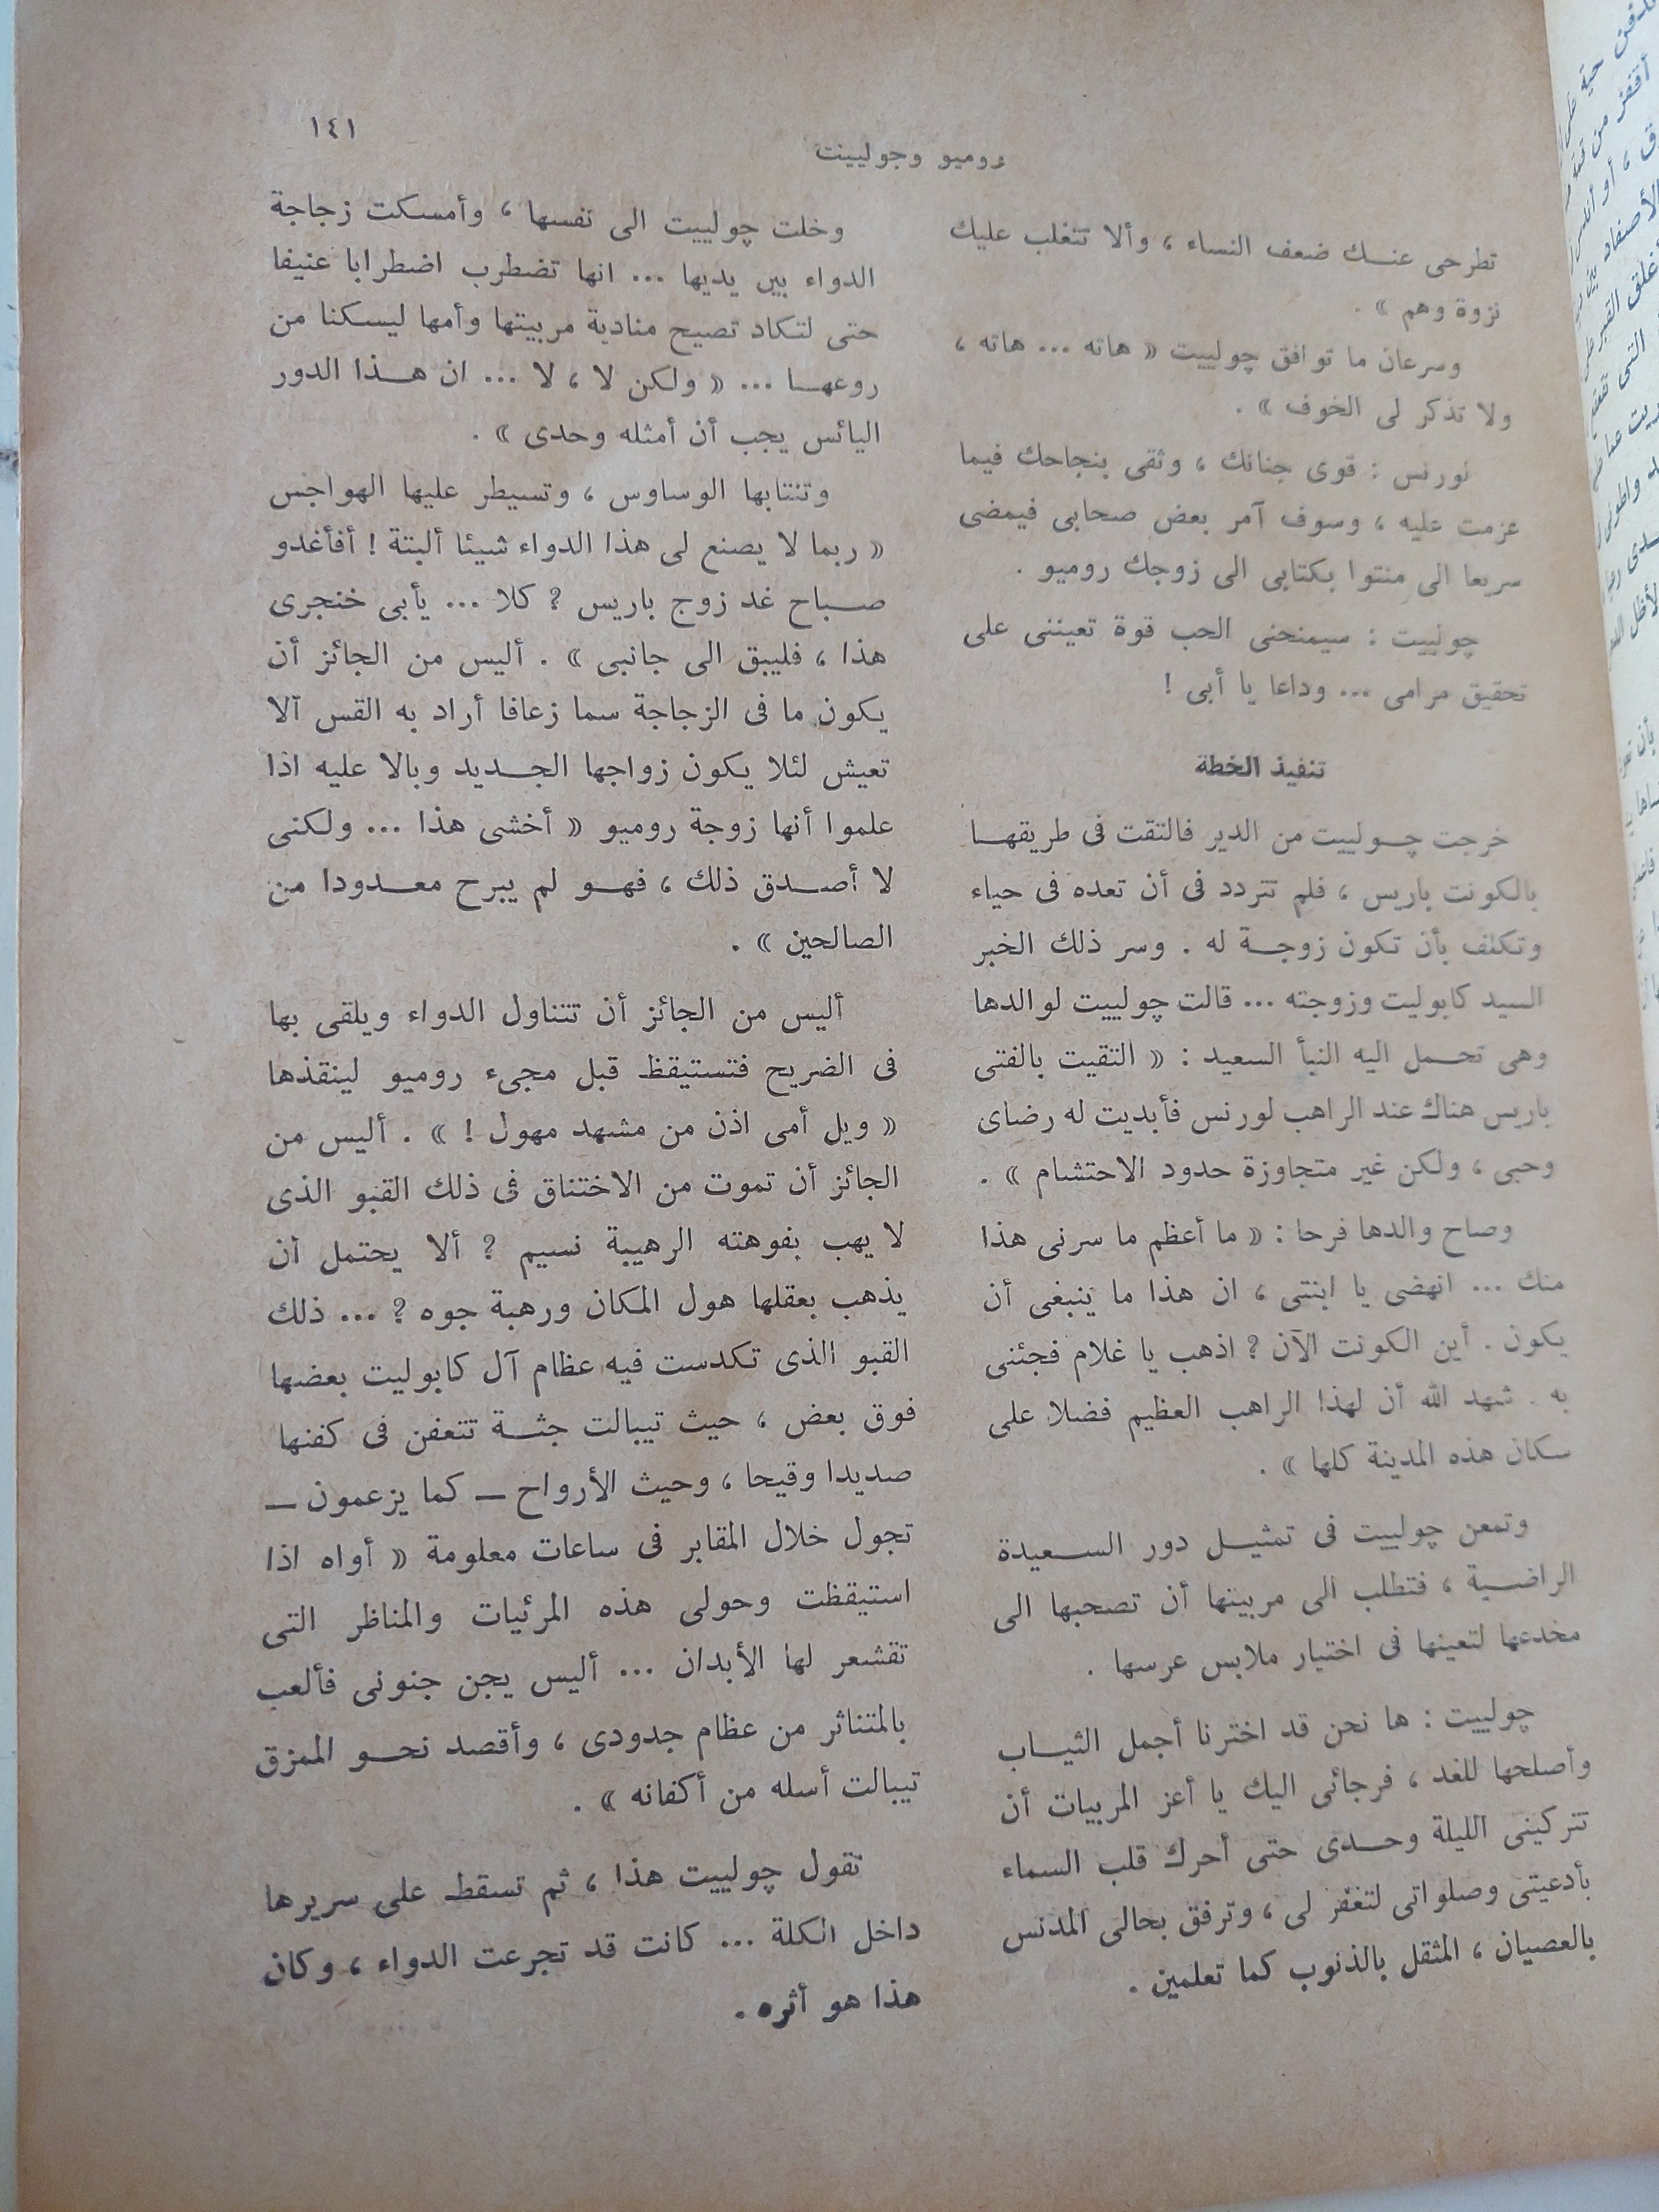 ١٤١
روميو وجوليينت
تطرحى عنك ضعف النساء ، وألا تتغلب عليك
نزوة وهم » .
وسرعان ما توافق چولييت « هاته ... هاته ،
ولا تذكر لى الخوف » .
لورنس : قوى جنانك ، وثقى بنجاحك فيما
عزمت عليه ، وسوف آمر بعض صحابى فيمضى
سريعا الى منتوا بكتابى الى زوجك روميو .
چولييت : سيمنحنى الحب قوة تعيننى على
تحقيق مرامى ... وداعا يا أبى !
تنفيذ الخطة
خرجت چولييت من الدير فالتقت فى طريقها
بالكونت باريس ، فلم تتردد فى أن تعده فى حياء
وتكلف بأن تكون زوجة له . وسر ذلك الخبر
السيد كابوليت وزوجته ... قالت چولييت لوالدها
وهى تحمل اليه النبأ السعيد : « التقيت بالفتى
باريس هناك عند الراهب لورنس فأبديت له رضاى
وحبى ، ولكن غير متجاوزة حدود الاحتشام » .
وصاح والدها فرحا : « ما أعظم ما سرنى هذا
منك ... انهضى يا ابنتى ، ان هذا ما ينبغى أن
يكون . أين الكونت الآن ? اذهب يا غلام فجئنى
به . شهد الله أن لهذا الراهب العظيم فضلا على
سكان هذه المدينة كلها » .
وتمعن چولييت فى تمثيل دور السعيدة
الراضية ، فتطلب الى مربيتها أن تصحبها الى
مخدعها لتعينها فى اختيار ملابس عرسها .
چولييت : ها نحن قد اخترنا أجمل الثياب
وأصلحها للغد ، فرجائى اليك يا أعز المربيات أن
تتركينى الليلة وحدى حتى أحرك قلب السماء
بأدعيتى وصلواتى لتغفر لى ، وترفق بحالى المدنس
بالعصيان ، المثقل بالذنوب كما تعلمين .
وخلت چولييت الى نفسها ، وأمسكت زجاجة
الدواء بين يديها ... انها تضطرب اضطرابا عنيفا
حتى لتكاد تصيح منادية مربيتها وأمها ليسكنا من
روعها ... « ولكن لا ، لا ... ان هذا الدور
اليائس يجب أن أمثله وحدى » .
وتنتابها الوساوس ، وتسيطر عليها الهواجس
« ربما لا يصنع لى هذا الدواء شيئا ألبتة ! أفأغدو
صباح غد زوج باريس ? كلا ... يأبى خنجرى
هذا ، فليبق الى جانبى » . أليس من الجائز أن
يكون ما فى الزجاجة سما زعافا أراد به القس آلا
تعيش لئلا يكون زواجها الجديد وبالا عليه اذا
علموا أنها زوجة روميو « أخشى هذا ... ولكنى
لا أصدق ذلك ، فهو لم يبرح معدودا من
الصالحين » .
أليس من الجائز أن تتناول الدواء ويلقى بها
فى الضريح فتستيقظ قبل مجىء روميو لينقذها
« ويل أمى اذن من مشهد مهول ! » . أليس من
الجائز أن تموت من الاختناق فى ذلك القبو الذى
لا يهب بفوهته الرهيبة نسيم ? ألا يحتمل أن
يذهب بعقلها هول المكان ورهبة جوه ? ... ذلك
القبو الذى تكدست فيه عظام آل كابوليت بعضها
فوق بعض ، حيث تيبالت جثة تتعفن فى كفنها
صديدا وقيحا ، وحيث الأرواح — كما يزعمون —
تجول خلال المقابر فى ساعات معلومة « أواه اذا
استيقظت وحولى هذه المرئيات والمناظر التى
تقشعر لها الأبدان ... أليس يجن جنونى فألعب
بالمتناثر من عظام جدودى ، وأقصد نحو الممزق
تيبالت أسله من أكفانه » .
تقول چولييت هذا ، ثم تسقط على سريرها
داخل الكلة ... كانت قد تجرعت الدواء ، وكان
هذا هو أثره .